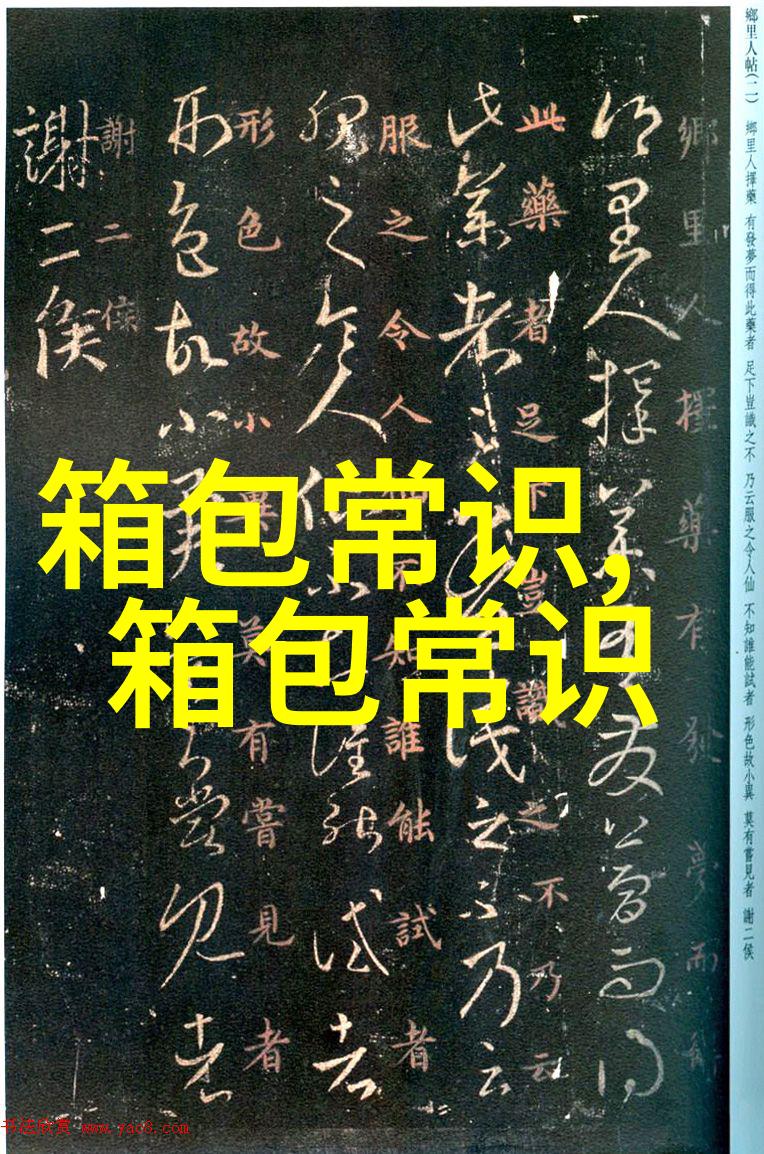 鄉里人帖(二) 鄉里人擇藥 有發夢而得此藥者 足下豈識之不 乃云服之令人仙 不知誰能試者 形色故小異 莫有嘗見者 謝二侯
鄉里人擇藥有發夢而得
此藥者足下豈識之不乃云
服之令人仙不知誰能試者
形色故小異莫有嘗見者
謝二侯
箱包常识,
箱包常识
书法欣赏 www.yac8.com